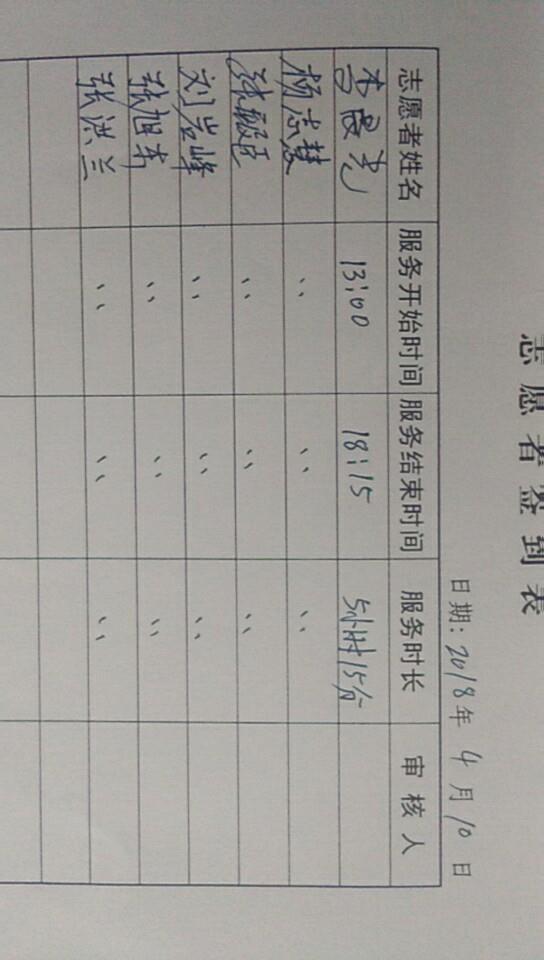 志愿者签到表
日期：2018年4月10日
志愿者姓名 服务开始时间 服务结束时间 服务时长 审核人
李 光 13:00 18:15 5小时15分
杨志慧 〃 〃 〃
张 〃 〃 〃
刘岩峰 〃 〃 〃
张旭东 〃 〃 〃
张洪兰 〃 〃 〃